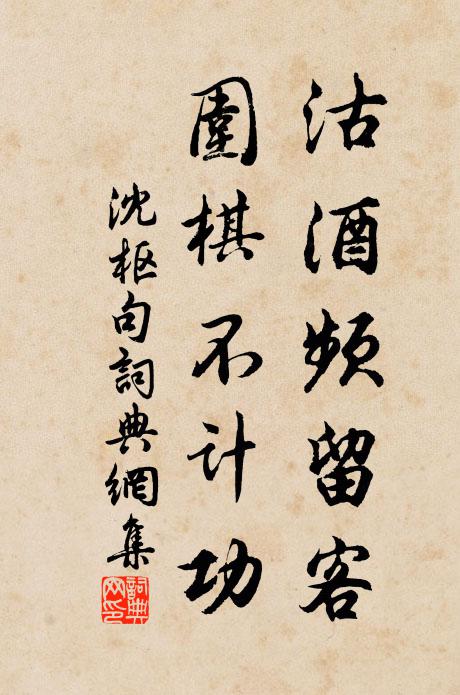 沽酒頻留客
圍棋不计功
沈枢句詞典網集
詞典网印